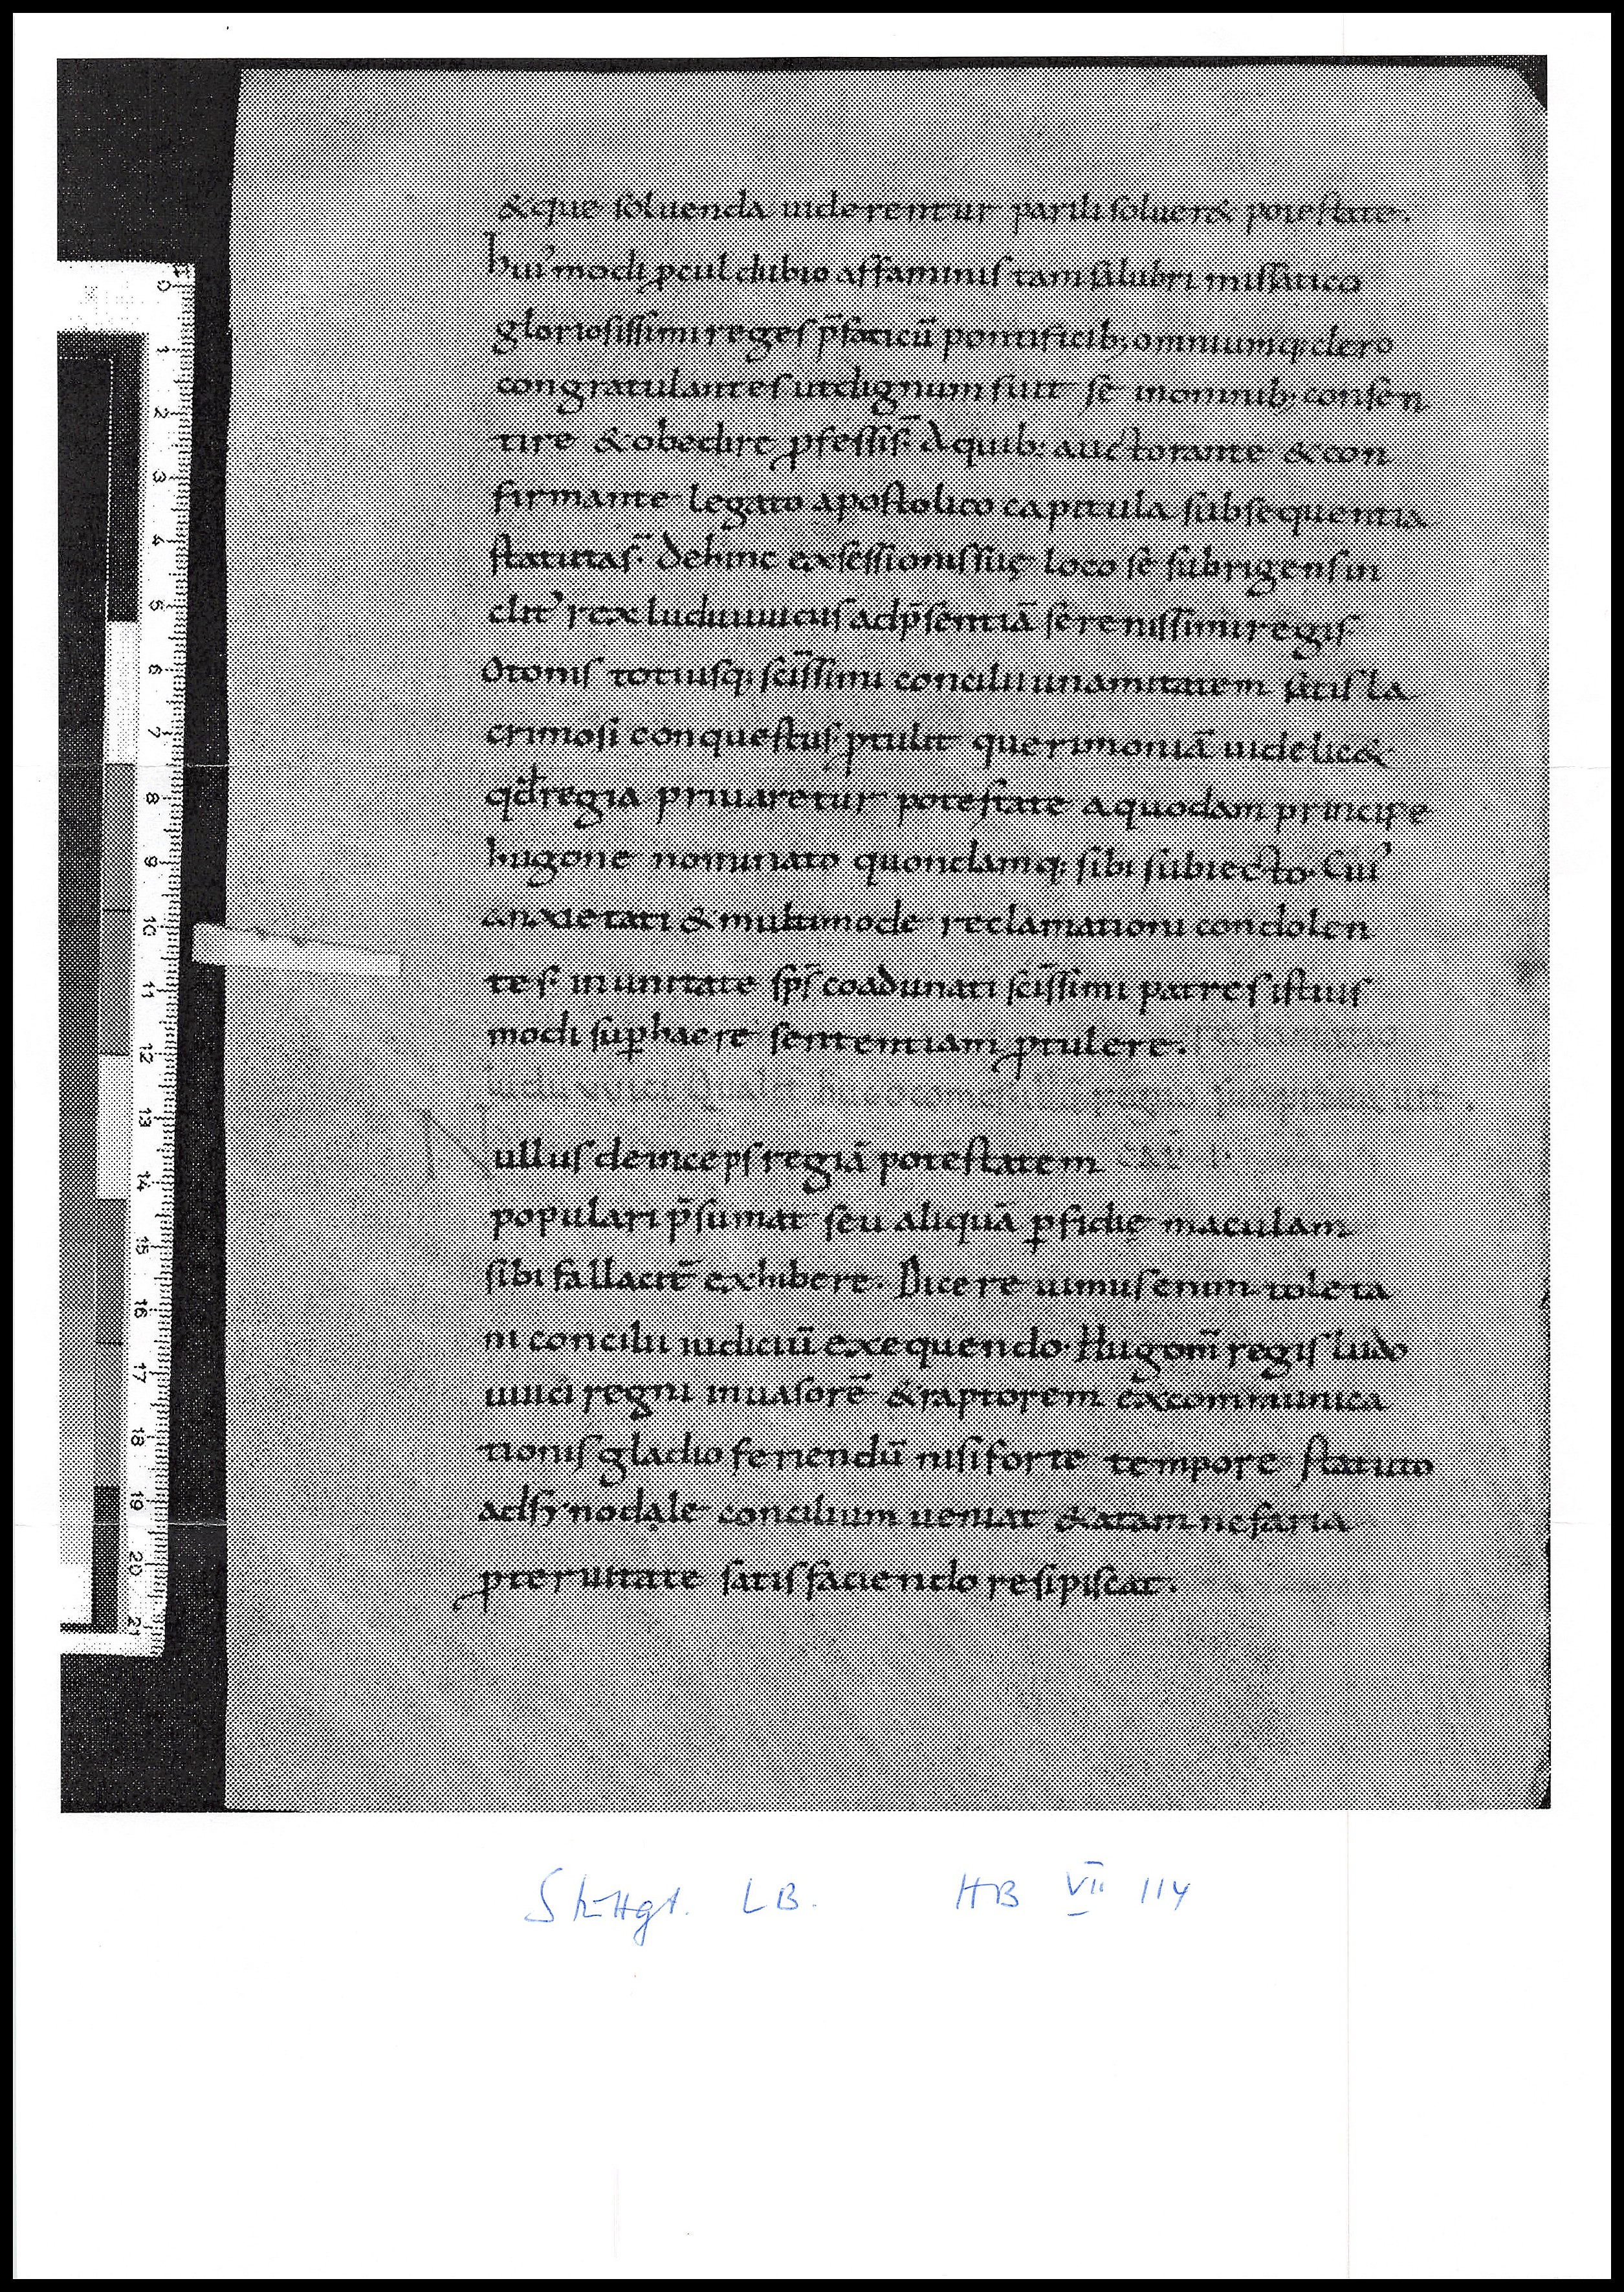 &que soluenda uiderentur parili soluer& potestate.
hui᾽modi ꝓcul dubio affaminis tam salubri missatico
gloriosissimi reges p̄faticū pontificib; omniumq; clero
congratulantes ut dignum fuit se in omnib; consen
tire & obedire ꝓfessis̄. A quib; auctorante & con
firmante legato apostolico capitula subsequentia
statuta s̄. Dehinc ex sessionis suę loco se subrigens in
clit᾽ rex luduuuicus ad p̄sentiā serenissimi regis
Otonis totiusq; sc̄issimi concilii unamitatem satis la
crimosi conquestus ꝓtulit querimoniā uidelic&
qd̄ regia priuaretur potestate a quodam principe
hugone nominato quondamq; sibi subiecto. Cui᾽
anxietati & multimode reclamationi condolen
tes in unitate sp̄s coadunati sc̄issimi patres istius
modi sup̲ hac re sententiam ꝓtulere.
Nullus deinceps regiā potestatem
populari p̄sumat seu aliquā ꝑfidię maculam
sibi fallacit̄ exhibere. Dicere uimus enim toleta
ni concilii iudiciū exequendo. Hugon̄ regis ludo
uuici regni inuasorē & raptorem excommunica
tionis gladio feriendū nisi forte tempore statuto
ad synodale concilium ueniat & a tam nefaria
ꝓteruitate satisfaciendo resipiscat.
Stuttgt. LB. HB VII 114